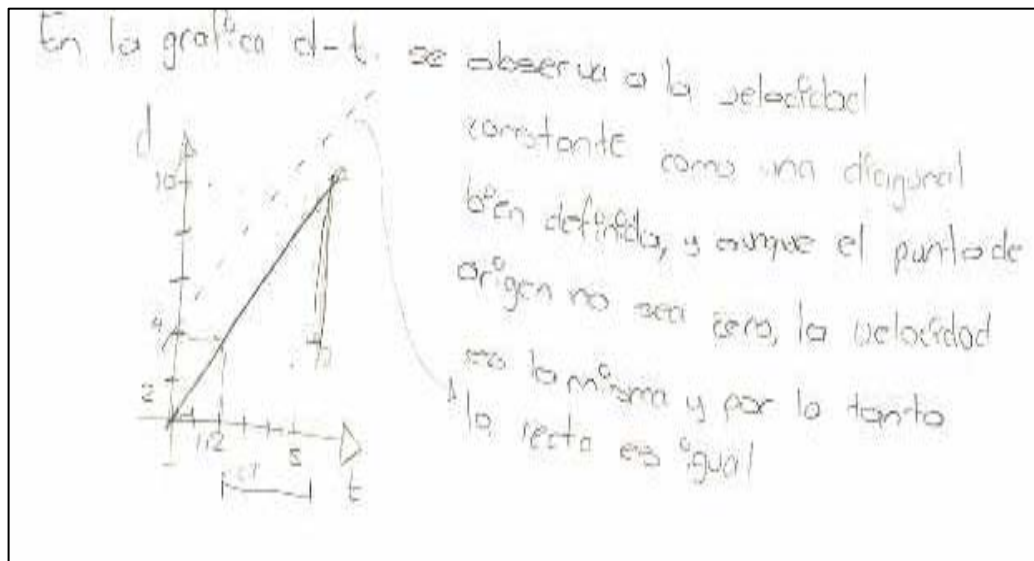 En la grafica d-t. se observa a la velocidad
constante como una diagonal
bien definida, y aunque el punto de
origen no sea cero, la velocidad
es la misma y por lo tanto
la recta es igual
d
10
4
2
1 2
5
t